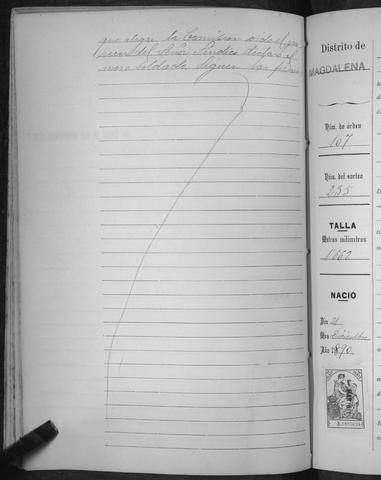 que alegar la Comision oido el pa
recer del Señor Síndico declaró al
mozo soldado. Siguen las firmas
Distrito de
MAGDALENA
Núm. de órden
167
Núm. del sorteo
235
TALLA
Metros milímetros
1'662
NACIO
Día 21
Mes Diciembre
Año 1890